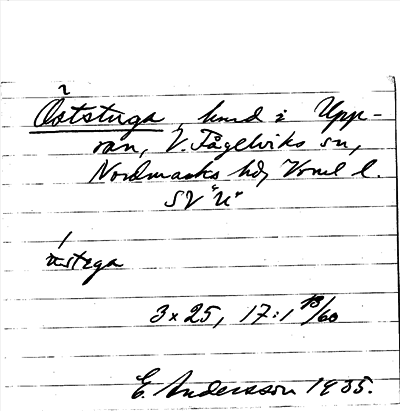 Öststuga, kund i Upp-
rän, V. Fågelviks sn,
Nordmarks hd, Vrml l.
SV "U"
ŭstega
3x25, 17:1 13/60
E. Andersson 1935.